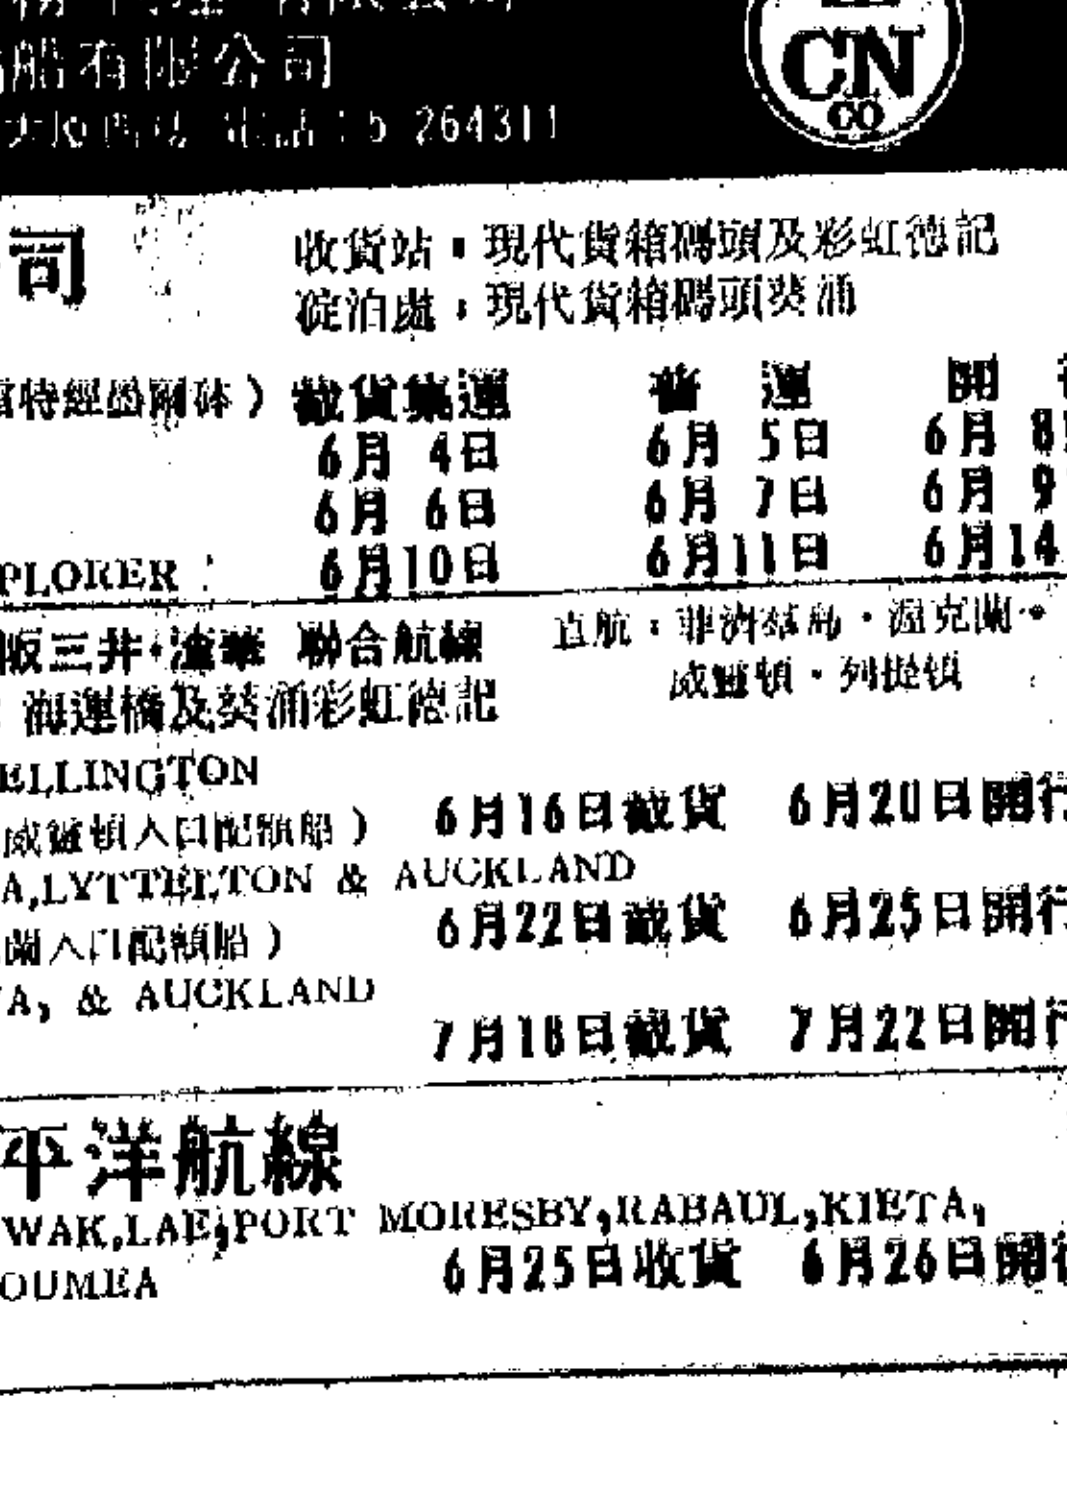 船有限公司
CN
CO
264311
司
收貨站：現代貨箱碼頭及彩虹德記
碇泊處：現代貨箱碼頭葵涌
截貨集運 舊運 開
6月 4日 6月 5日 6月 8
6月 6日 6月 7日 6月 9
PLORER 6月10日 6月11日 6月14
阪三井·渣華 聯合航線 直航：菲濟羣島·渥克蘭·
威靈頓·列提頓
海運橋及葵涌彩虹德記
ELLINGTON
威靈頓入口配額船） 6月16日截貨 6月20日開行
A,LYTTELTON & AUCKLAND
蘭入口配額船） 6月22日截貨 6月25日開行
A, & AUCKLAND
7月18日截貨 7月22日開行
平洋航線
WAK,LAE,PORT MORESBY,RABAUL,KIETA,
OUMEA 6月25日收貨 6月26日開行